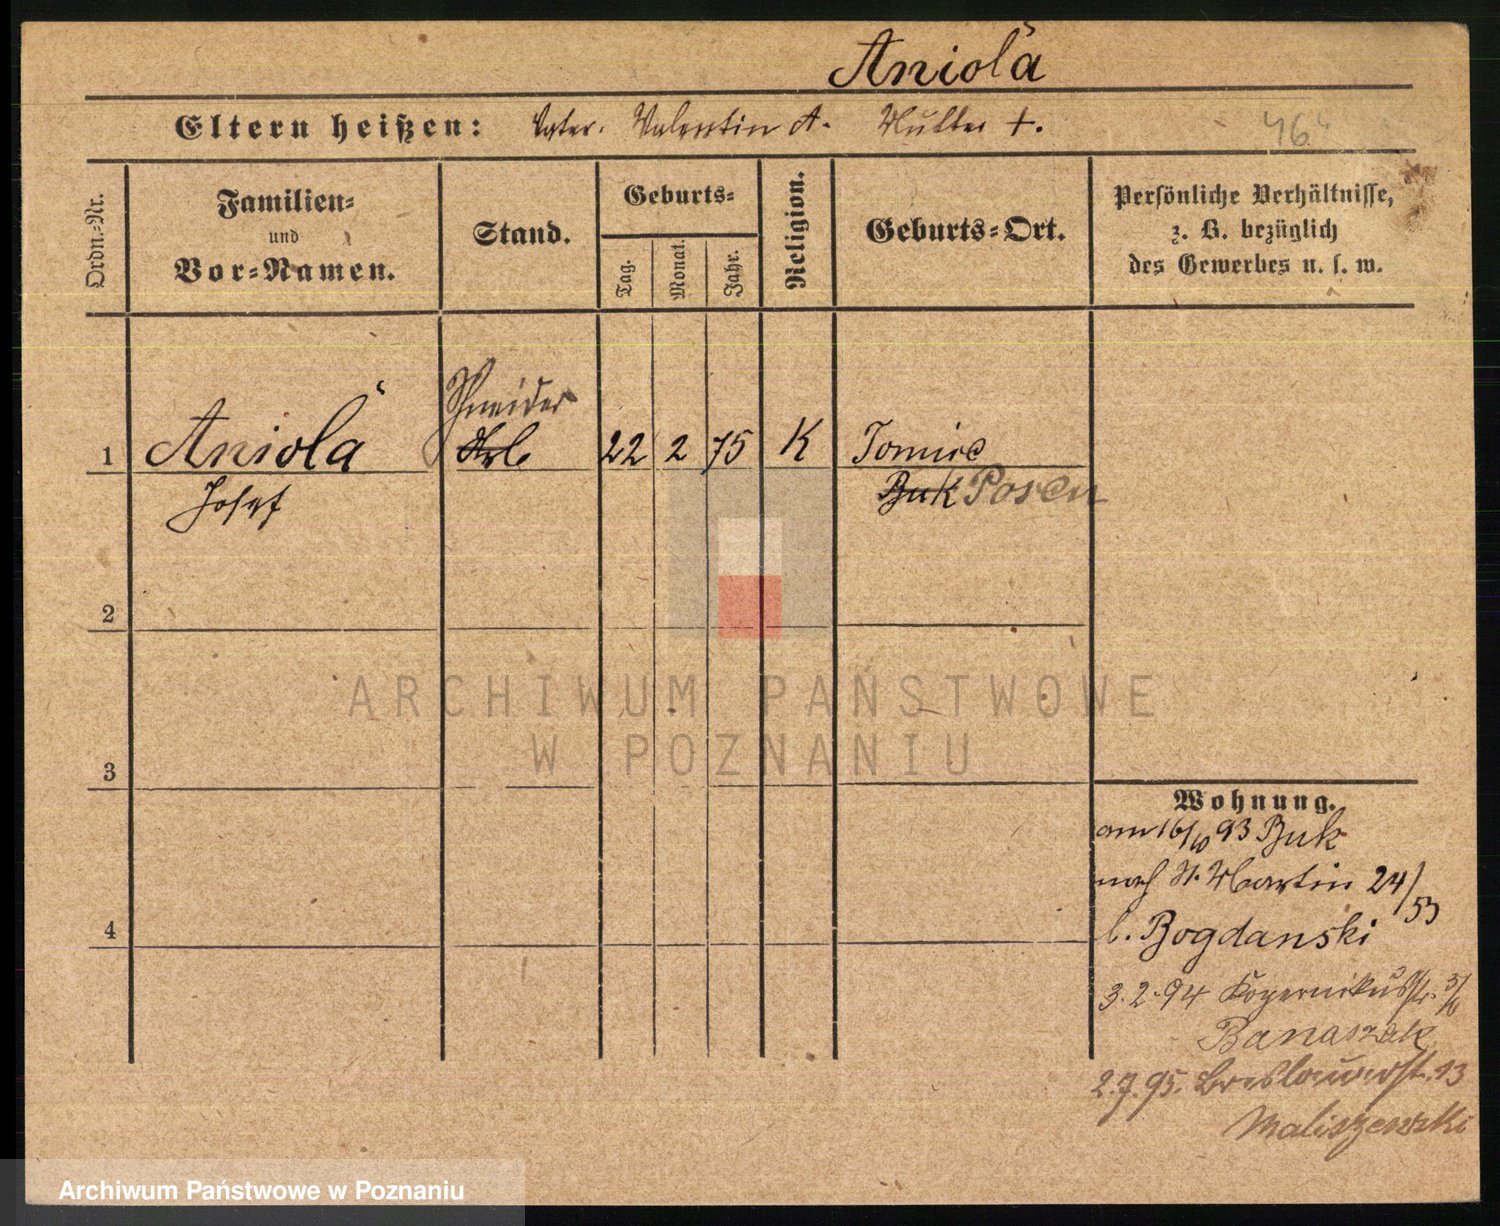 Anioła
Eltern heißen: Vater. Valentin A. Mutter +.
Ordn.-Nr.
Familien-
und
Vor-Namen.
Stand.
Geburts-
Tag.
Monat.
Jahr.
Religion.
Geburts-Ort.
Persönliche Verhältnisse,
z. B. bezüglich
des Gewerbes u. s. w.
Schneider
1 Anioła Arb 22 2 75 K Tomice
Josef Buk Posen
2
3
4
Wohnung.
am 16/10 93 Buk
nach St. Martin 24/53
b. Bogdanski
3.2.94 Kopernikusstr. 3/10
Banaszak
2.7.95. Breslauerst. 13
Maliszewski
ARCHIWUM PAŃSTWOWE
W POZNANIU
Archiwum Państwowe w Poznaniu